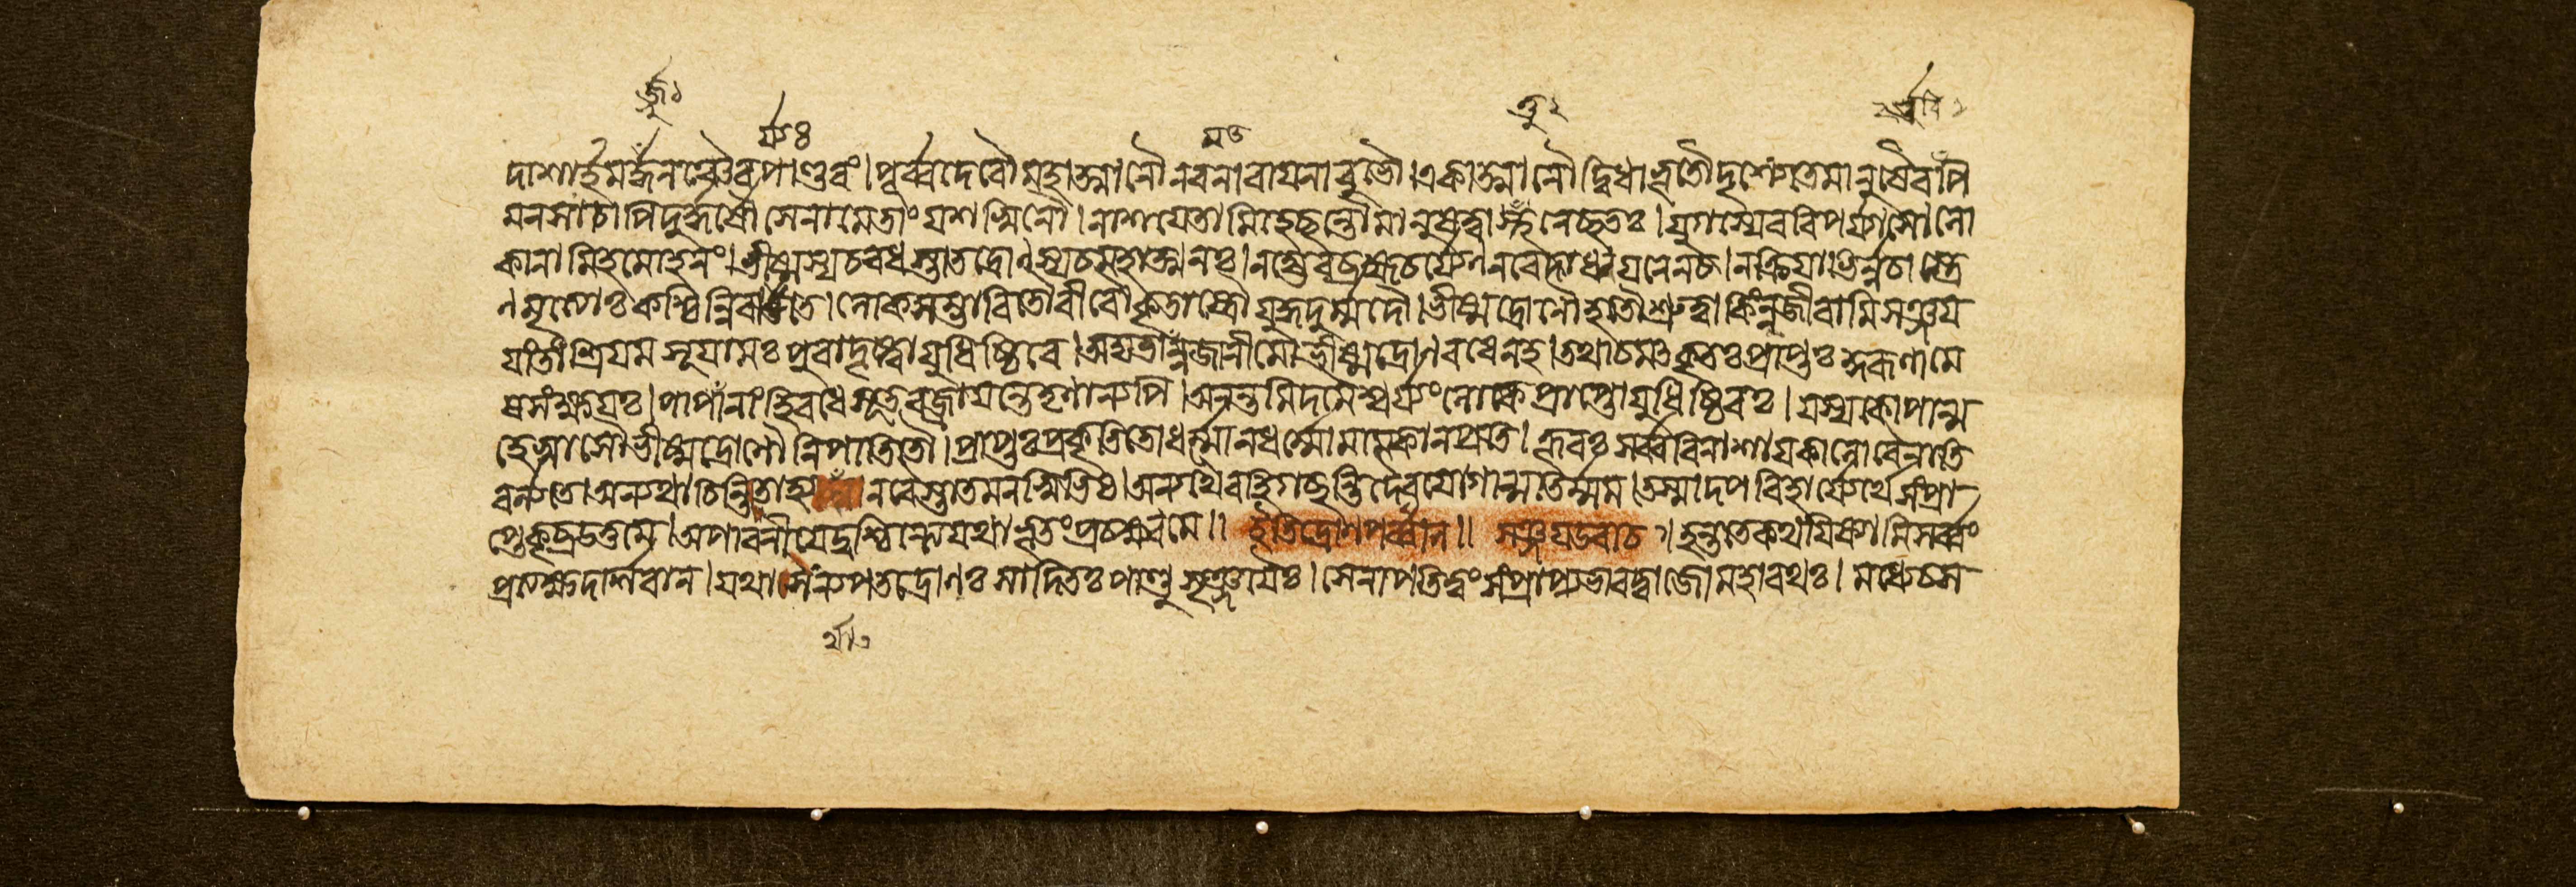 র্জু১
র্য্য৪
ম৩
ত্তু২
দাশার্হমর্জ্জুনঞ্চৈব পাণ্ডবং। পূর্ব্বদেবৌ মহাত্মানৌ নরনারায়ণাবুভৌ। একাত্মানৌ দ্বিধাভূতৌ দৃশ্যেতে মানুষৈরপি
মনসাচাপি দুর্দ্ধর্ষৌ সেনামেতাং যশস্বিনৌ। নাশয়েতামিহেচ্ছন্তৌ মানুষত্বান্তু নেচ্ছতঃ। যুগস্যেব বিপর্য্যাসো লো
কানামিহ মোহনং। ভীষ্মস্য চ বধস্তাত দ্রোণস্য চ মহাত্মনঃ। ন হ্যেব ব্রহ্মচর্য্যেণ ন বেদাধ্যয়নেন চ। ন ক্রিয়াভির্ন্নচাস্ত্রে
ণ মৃত্যোঃ কশ্চিন্নিবার্য্যতে। লোকসম্ভাবিতৌ বীরৌ কৃতাস্ত্রৌ যুদ্ধদুর্ম্মদৌ। ভীষ্মদ্রোণৌ হতৌ শ্রুত্বা কিন্নু জীবামি সঞ্জয়
যাং তাং শ্রিয়মসূয়ামঃ পুরা দৃষ্ট্বা যুধিষ্ঠিরে। অদ্য তামনুজানীমো ভীষ্মদ্রোণবধেন হ। তথা চ মৎকৃতঃ প্রাপ্তঃ কুরূণামে
ষ সংক্ষয়ঃ। পাপানাং হি বধে সূত বজ্রায়ন্তে তৃণান্যপি। অনন্তমিদমৈশ্বর্য্যং লোকে প্রাপ্তো যুধিষ্ঠিরঃ। যস্য কোপান্ম
হেষ্বাসৌ ভীষ্মদ্রোণৌ নিপাতিতৌ। প্রাপ্তঃ প্রকৃতিতো ধর্ম্মো নাধর্ম্মো মামকান্ প্রতি। ক্রূরঃ সর্ব্ববিনাশায় কালো বৈ নাতি
বর্ত্ততে। অন্যথা চিন্তিতা হ্যর্থা নরৈস্তাত মনস্বিভিঃ। অন্যথৈব হি গচ্ছন্তি দৈবযোগান্মতির্ম্মম। তস্মাদপরিহার্য্যেঽর্থে সংপ্রা
প্তে কৃচ্ছ্র উত্তমে। অপারণীয়ে দুশ্চিন্ত্যে যথাভূতং প্রচক্ষ্ব মে॥ ইতি দ্রোণপর্ব্বণি॥ সঞ্জয় উবাচ। হন্ত তে কথয়িষ্যামি সর্ব্বং
প্রত্যক্ষদর্শিবান্। যথা স ন্যপতদ্দ্রোণঃ সাদিতঃ পাণ্ডুসৃঞ্জয়ৈঃ। সেনাপতিত্বং সংপ্রাপ্য ভারদ্বাজো মহারথঃ। মধ্যে চ স